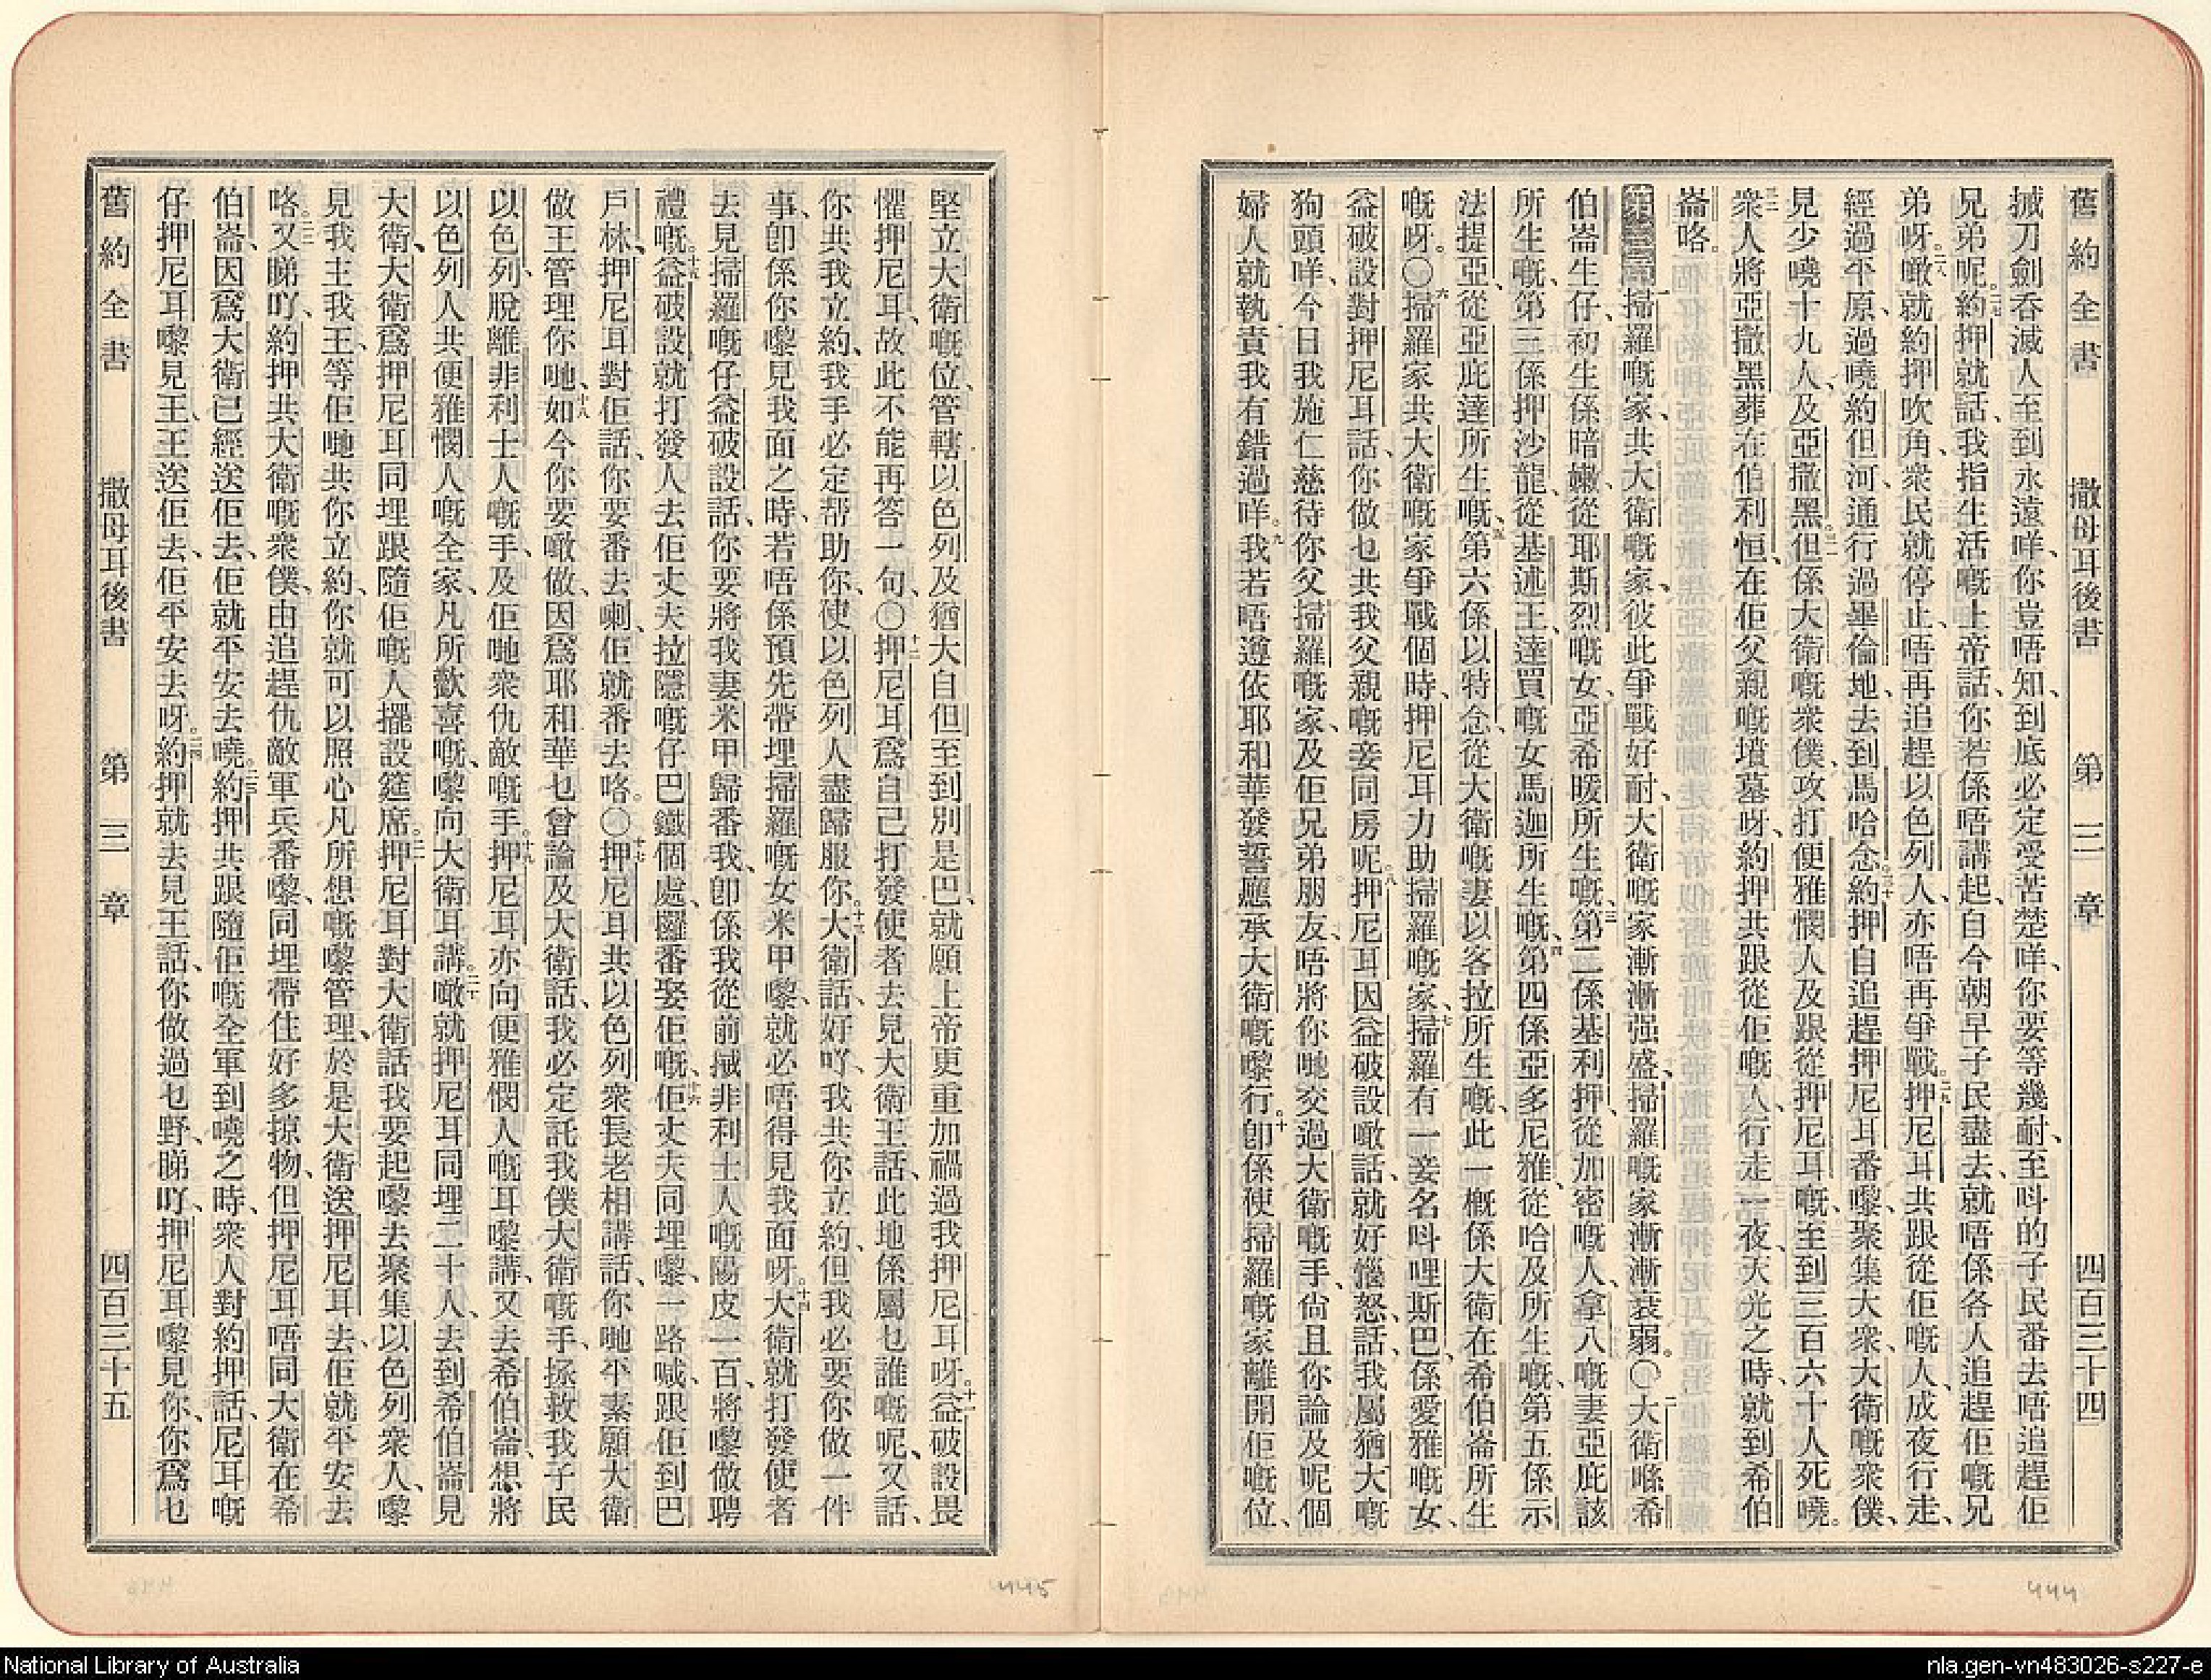 舊約全書　撒母耳後書　第三章　四百三十四
搣刀劍吞滅人至到永遠咩、你豈唔知、到底必定受苦楚咩、你要等幾耐、至呌的子民番去唔追趕佢
兄弟呢。二七約押就話、我指生活嘅上帝話、你若係唔講起、自今朝早子民盡去、就唔係各人追趕佢嘅兄
弟呀。二八噉就約押吹角、衆民就停止、唔再追趕以色列人、亦唔再爭戰。二九押尼耳共跟從佢嘅人、成夜行走、
經過平原、過嘵約但河、通行過畢倫地、去到馬哈念。三十約押自追趕押尼耳番嚟、聚集大衆、大衛嘅衆僕、
見少嘵十九人、及亞撒黑。三一但係大衛嘅衆僕、攻打便雅憫人及跟從押尼耳嘅、至到三百六十人死嘵。
三二衆人將亞撒黑葬在伯利恒、在佢父親嘅墳墓呀、約押共跟從佢嘅人、行走一夜、天光之時、就到希伯
崙咯。
第三章 一掃羅嘅家、共大衛嘅家、彼此爭戰好耐、大衛嘅家漸漸强盛、掃羅嘅家漸漸衰弱。〇二大衛喺希
伯崙生仔、初生係暗嫩、從耶斯烈嘅女、亞希暖所生嘅、三第二係基利押、從加密嘅人、拿八嘅妻亞庇該
所生嘅、第三係押沙龍、從基述王、達買嘅女馬迦所生嘅、四第四係亞多尼雅、從哈及所生嘅、第五係示
法提亞、從亞庇達所生嘅、五第六係以特念、從大衛嘅妻以客拉所生嘅、此一概係大衛在希伯崙所生
嘅呀。〇六掃羅家共大衛嘅家爭戰個時、押尼耳力助掃羅嘅家、七掃羅有一妾名呌哩斯巴、係愛雅嘅女、
益破設對押尼耳話、你做乜共我父親嘅妾同房呢。八押尼耳因益破設噉話、就好惱怒、話、我屬猶大嘅
狗頭咩、今日我施仁慈待你父掃羅嘅家、及佢兄弟朋友、唔將你哋交過大衛嘅手、尙且你論及呢個
婦人就執責我有錯過咩。九我若唔遵依耶和華發誓應承大衛嘅嚟行。十卽係使掃羅嘅家離開佢嘅位、
堅立大衛嘅位、管轄以色列、及猶大、自但至到別是巴、就願上帝更重加禍過我押尼耳呀。十一益破設畏
懼押尼耳、故此不能再答一句、〇十二押尼耳爲自己打發使者去見大衛王話、此地係屬乜誰嘅呢、又話、
你共我立約、我手必定帮助你、使以色列人盡歸服你。十三大衛話、好吖、我共你立約、但我必要你做一件
事、卽係你嚟見我面之時、若唔係預先帶埋掃羅嘅女米甲嚟、就必唔得見我面呀。十四大衛就打發使者
去見掃羅嘅仔益破設話、你要將我妻米甲歸番我、卽係我從前搣非利士人嘅陽皮一百、將嚟做聘
禮嘅。十五益破設就打發人去佢丈夫拉隱嘅仔巴鐵個處、攞番娶佢嘅、十六佢丈夫同埋嚟、一路喊、跟佢到巴
戶林、押尼耳對佢話、你要番去喇、佢就番去咯。〇十七押尼耳共以色列衆長老相講話、你哋平素願大衛
做王管理你哋、十八如今你要噉做、因爲耶和華也曾論及大衛話、我必定託我僕大衛嘅手、拯救我子民
以色列、脫離非利士人嘅手、及佢哋衆仇敵嘅手。十九押尼耳亦向便雅憫人嘅耳嚟講、又去希伯崙、想將
以色列人共便雅憫人嘅全家、凡所歡喜嘅、嚟向大衛耳講。二十噉就押尼耳同埋二十人、去到希伯崙見
大衛、大衛爲押尼耳同埋跟隨佢嘅人擺設筵席。二一押尼耳對大衛話、我要起嚟去聚集以色列衆人、嚟
見我主我王、等佢哋共你立約、你就可以照心凡所想嘅嚟管理、於是大衛送押尼耳去、佢就平安去
咯。二二又睇吖、約押共大衛嘅衆僕、由追趕仇敵軍兵番嚟、同埋帶住好多掠物、但押尼耳唔同大衛在希
伯崙、因爲大衛已經送佢去、佢就平安去嘵。二三約押共跟隨佢嘅全軍到嘵之時、衆人對約押話、尼耳嘅
仔押尼耳嚟見王、王送佢去、佢平安去呀。二四約押就去見王話、你做過乜野、睇吖、押尼耳嚟見你、你爲乜
舊約全書　撒母耳後書　第三章　四百三十五
444
445
National Library of Australia
nla.gen-vn483026-s227-e